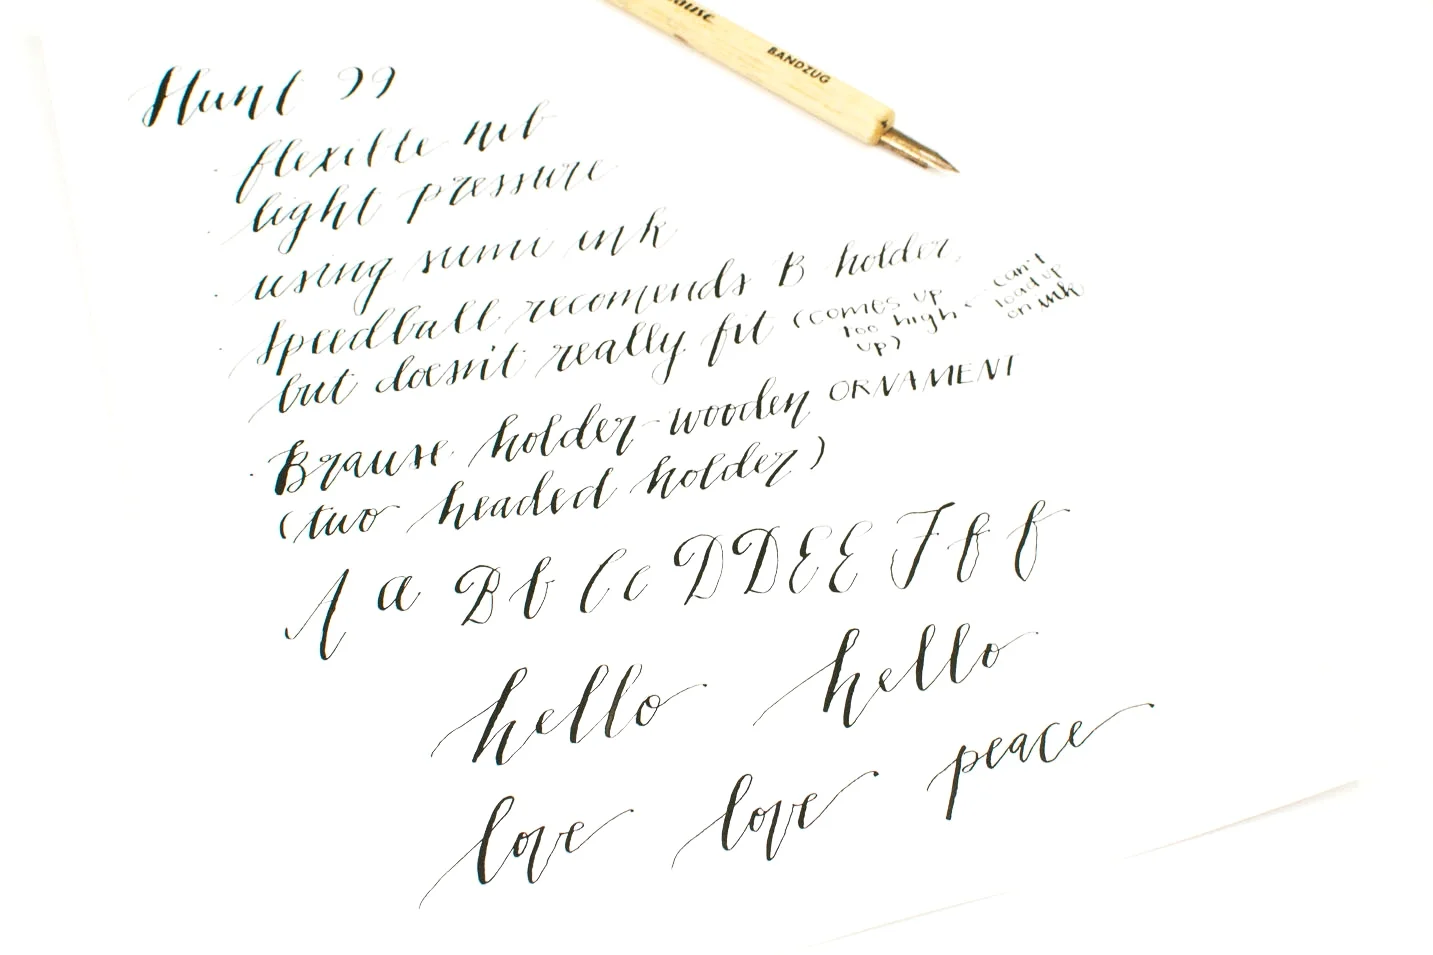 ause
BANDZUG
Hunt 99
flexible nib
light pressure
using sumi ink
speedball recomends B holder,
but doesn't really fit (comes up
too high
up)
can't
load up
on ink
Brause holder-wooden ORNAMENT
(two headed holder)
A a B b C c D D E E F f f
hello hello
love love peace